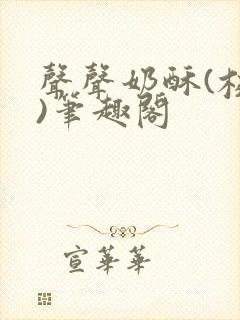 聲聲奶酥(校
)筆趣閣
宣華華